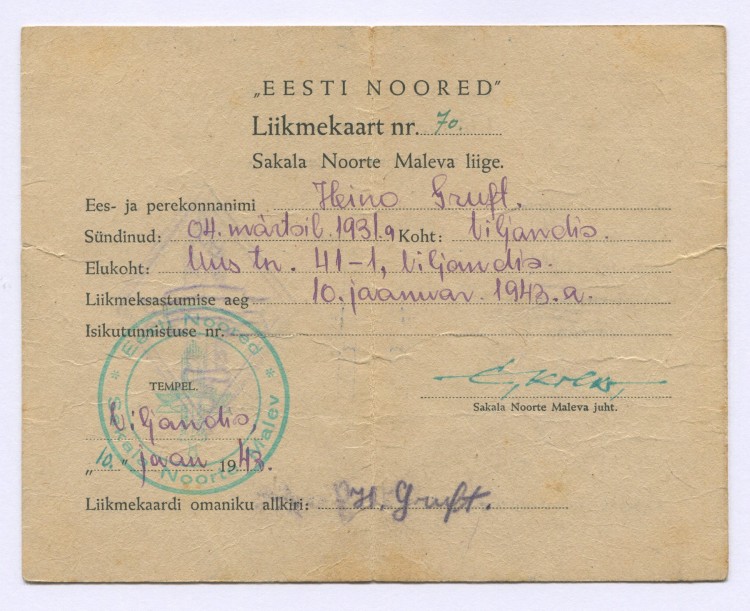 „EESTI NOORED"
Liikmekaart nr. 70.
Sakala Noorte Maleva liige.
Ees- ja perekonnanimi Heino Gruft.
Sündinud: 04. märtsil 1931.a Koht: Viljandis.
Elukoht: Uus tn. 41-1, Viljandis.
Liikmeksastumise aeg 10. jaanuar 1943.a.
Isikutunnistuse nr.
* Eesti Noored * Sakala Noorte Malev
TEMPEL.
Viljandis,
„10." jaan 1943.
Sakala Noorte Maleva juht.
Liikmekaardi omaniku allkiri: H. Gruft.